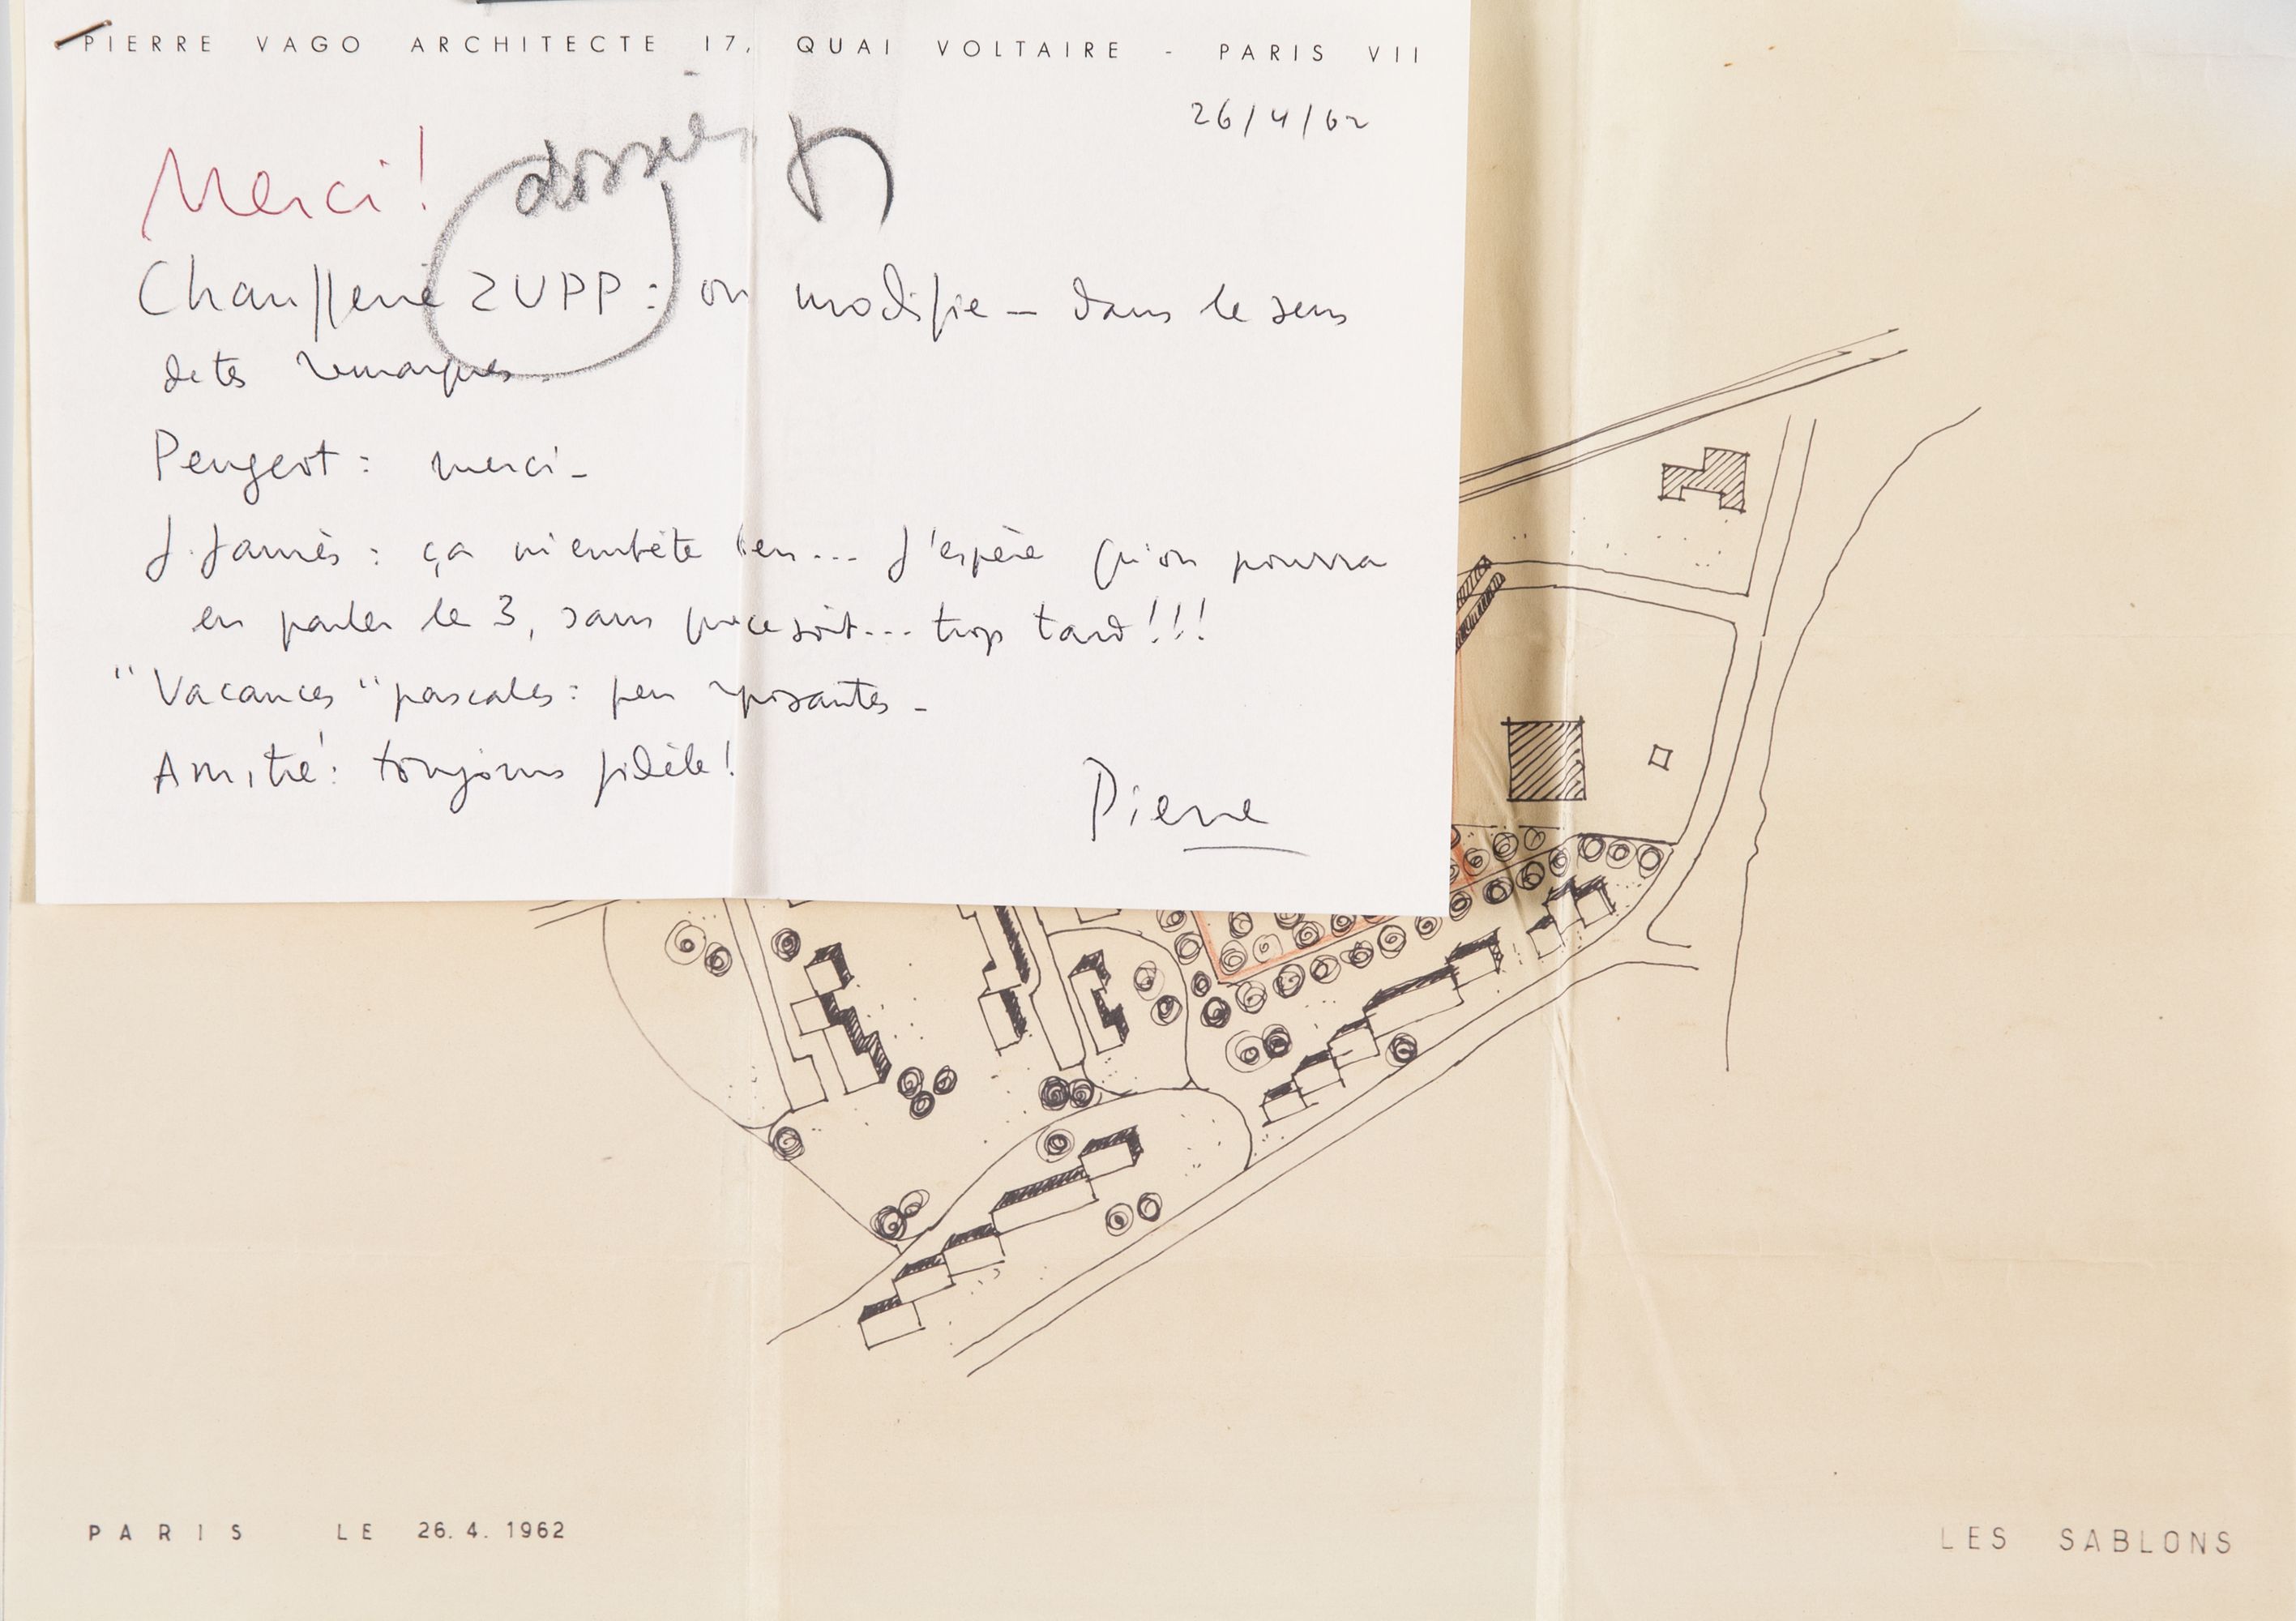 PIERRE VAGO ARCHITECTE 17, QUAI VOLTAIRE - PARIS VII
26/4/62
Merci!
dossier
Chaufferie ZUPP : on modifie — dans le sens
de tes remarques.
Peugeot : merci –
: ça m'embête ... J'espère qu'on pourra
en parler le 3, sans que ce soit... trop tard!!!
"Vacances" pascales : peu reposantes –
Amitié : toujours fidèle!
Pierre
PARIS LE 26. 4. 1962
LES SABLONS